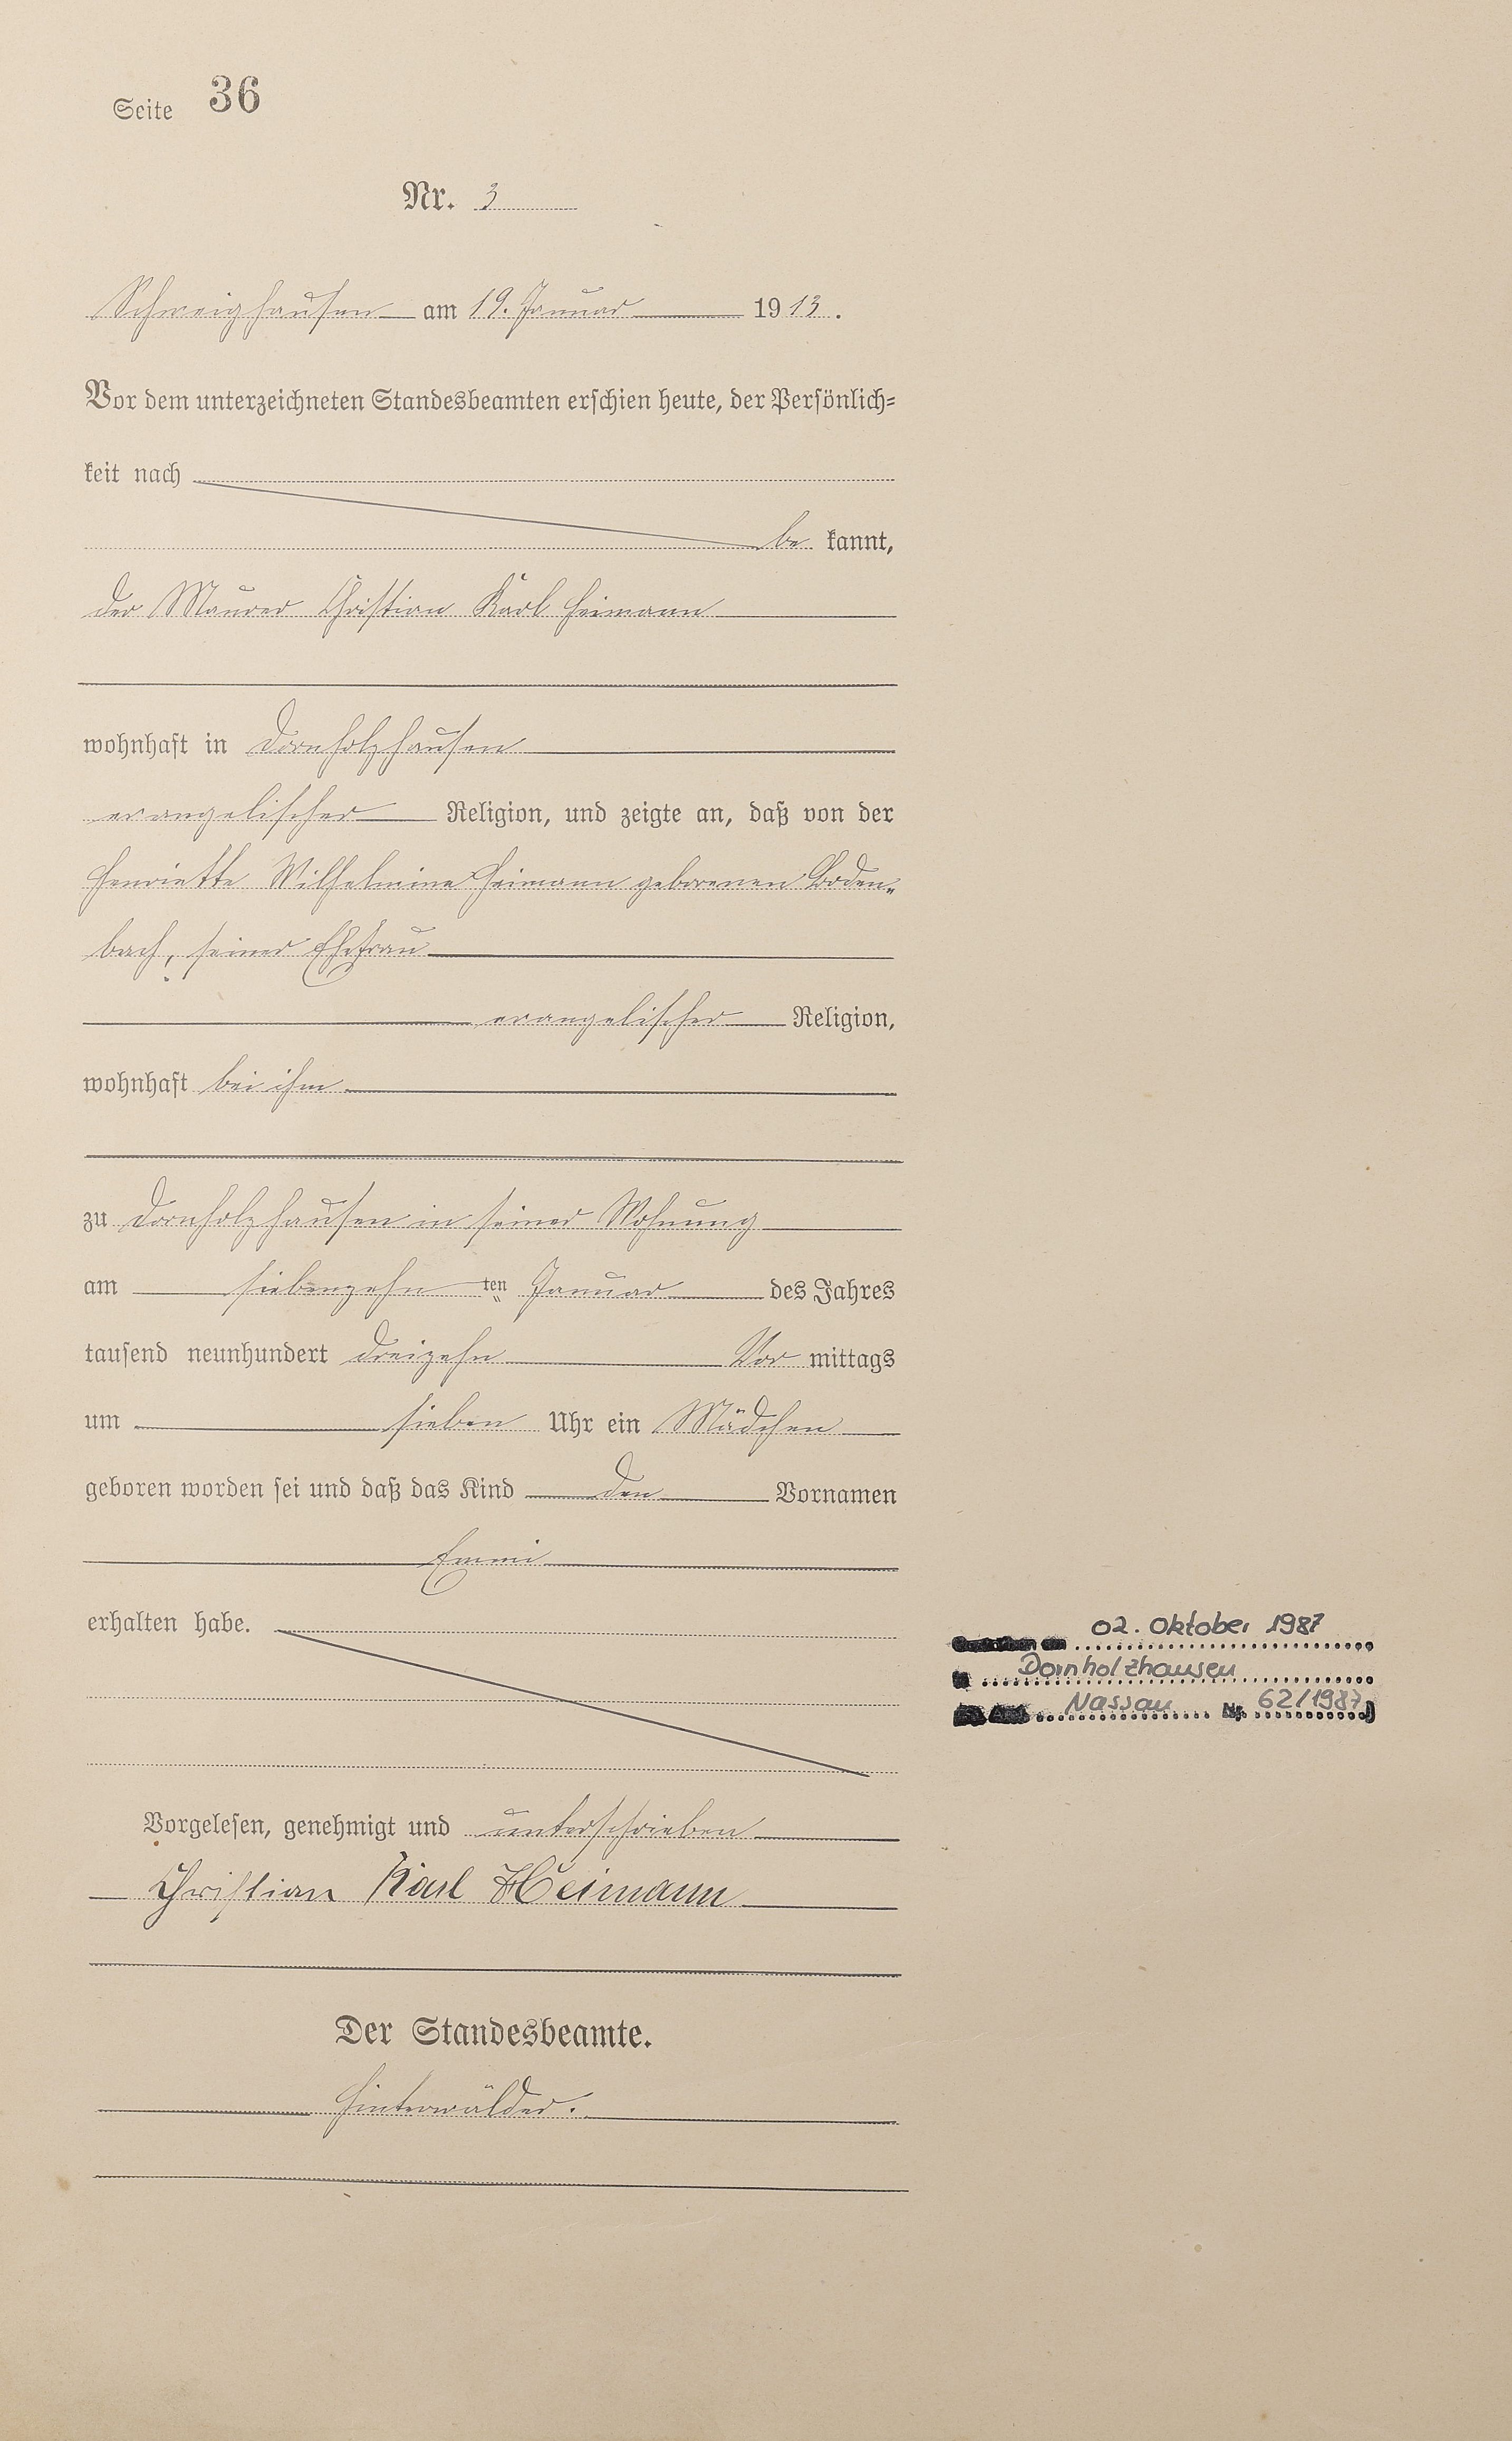 Seite 36
Nr. 3
Schweighausen am 19. Januar 1913.
Vor dem unterzeichneten Standesbeamten erschien heute, der Persönlich-
keit nach
be kannt,
der Maurer Christian Karl Heimann
wohnhaft in Dornholzhausen
evangelischer Religion, und zeigte an, daß von der
Henriette Wilhelmine Heimann geborenen Boden-
bach, seiner Ehefrau
evangelischer Religion,
wohnhaft bei ihm
zu Dornholzhausen in seiner Wohnung
am siebenzehn ten Januar des Jahres
tausend neunhundert dreizehn Vor mittags
um sieben Uhr ein Mädchen
geboren worden sei und daß das Kind den Vornamen
Emmi
erhalten habe.
02. Oktober 1987
Dornholzhausen
Nassau Nr. 62/1987)
Vorgelesen, genehmigt und unterschrieben
Christian Karl Heimann
Der Standesbeamte.
Hinterwälder.